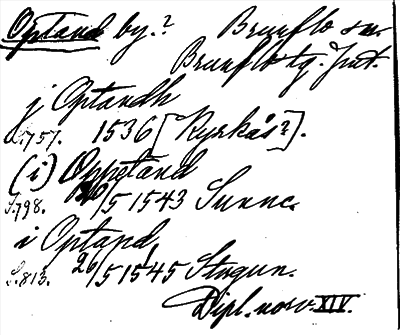 Optand by.? Brunflo sn.
Brunflo tg. Jmt.
j Optandh
S.757. 1536 [Kyrkås?].
(i) Oppetand
S.798. 26/5 1543 Sunne.
i Optand,
S.813. 26/5 1545 Stugun.
Dipl. norv. XIV.